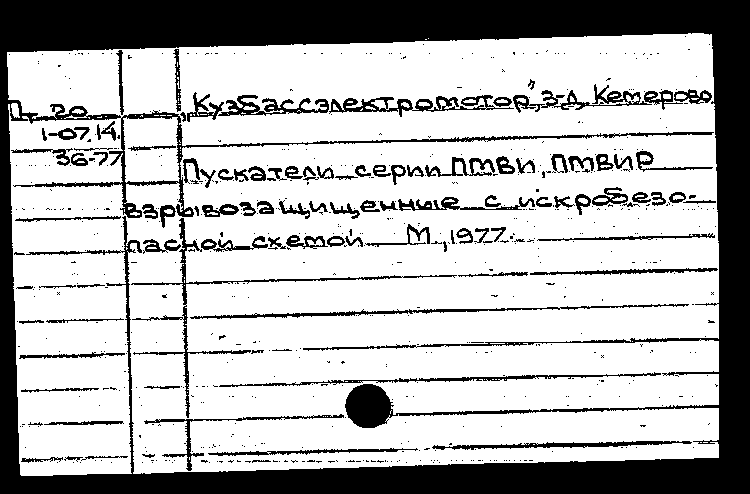 П. 20 „Кузбассэлектромотор", з-д, Кемерово
1-07.14.
36-77
Пускатели серии ПМВИ, ПМВИР
взрывозащищенные с искробезо-
пасной схемой М., 1977.